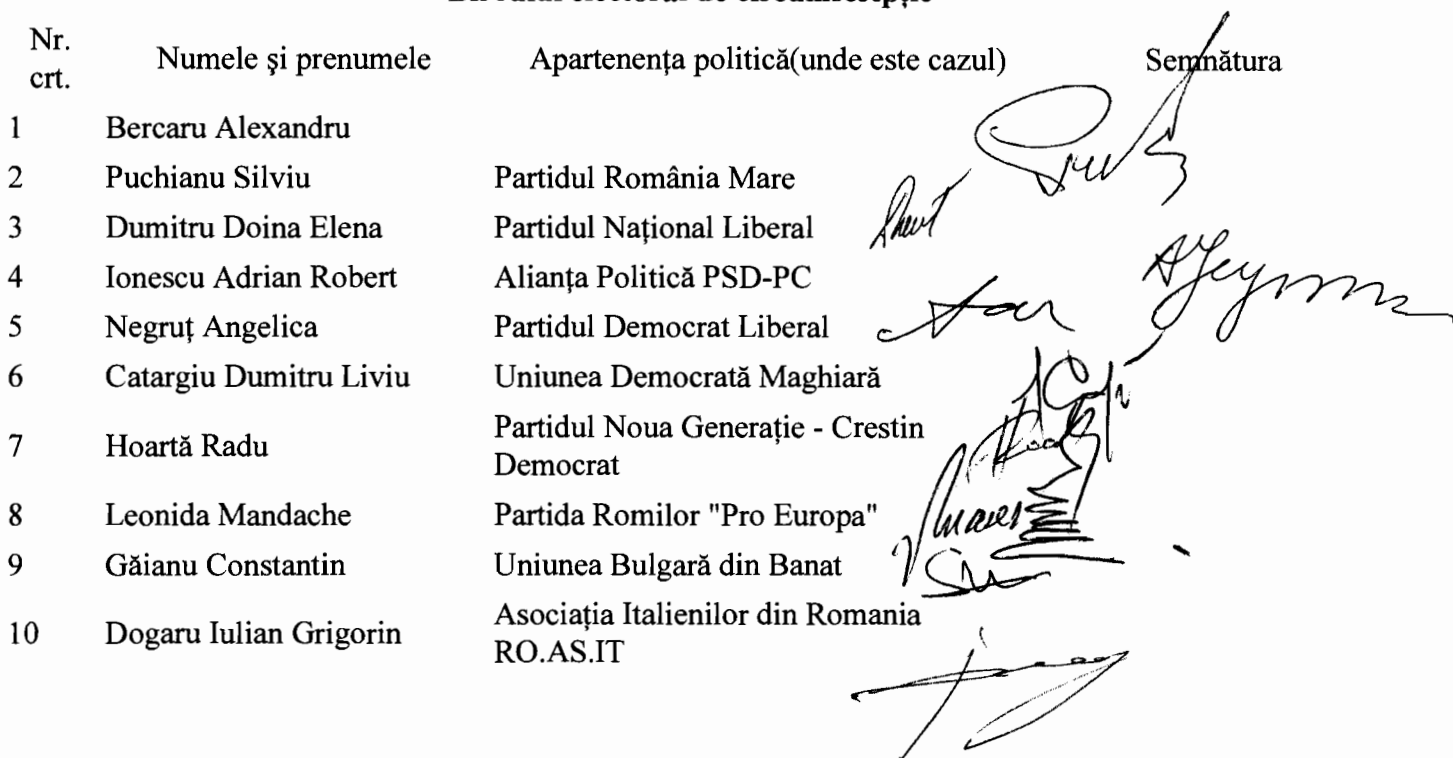 Nr. crt. Numele şi prenumele Apartenența politică(unde este cazul) Semnătura
1 Bercaru Alexandru
2 Puchianu Silviu Partidul România Mare
3 Dumitru Doina Elena Partidul Național Liberal
4 Ionescu Adrian Robert Alianța Politică PSD-PC
5 Negruț Angelica Partidul Democrat Liberal
6 Catargiu Dumitru Liviu Uniunea Democrată Maghiară
7 Hoartă Radu Partidul Noua Generație - Crestin
Democrat
8 Leonida Mandache Partida Romilor "Pro Europa"
9 Găianu Constantin Uniunea Bulgară din Banat
10 Dogaru Iulian Grigorin Asociația Italienilor din Romania
RO.AS.IT